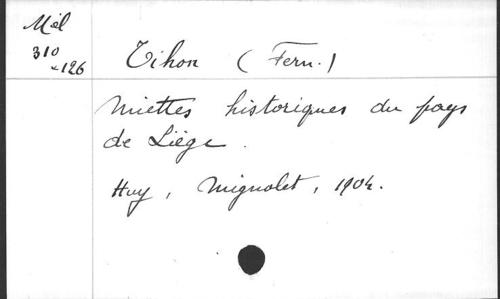 Mél
310
×126
Tihon (Fern.)
Miettes historiques du pays
de Liége.
Huy, Mignolet, 1904.